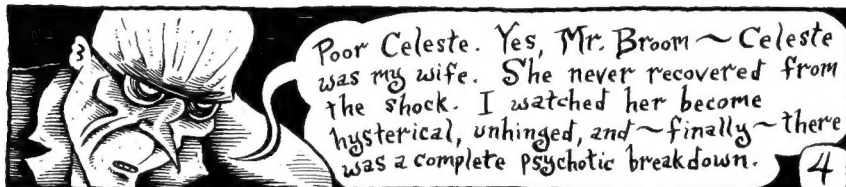 Poor Celeste. Yes, Mr. Broom ~ Celeste
was my wife. She never recovered from
the shock. I watched her become
hysterical, unhinged, and ~ finally ~ there
was a complete psychotic breakdown.
4